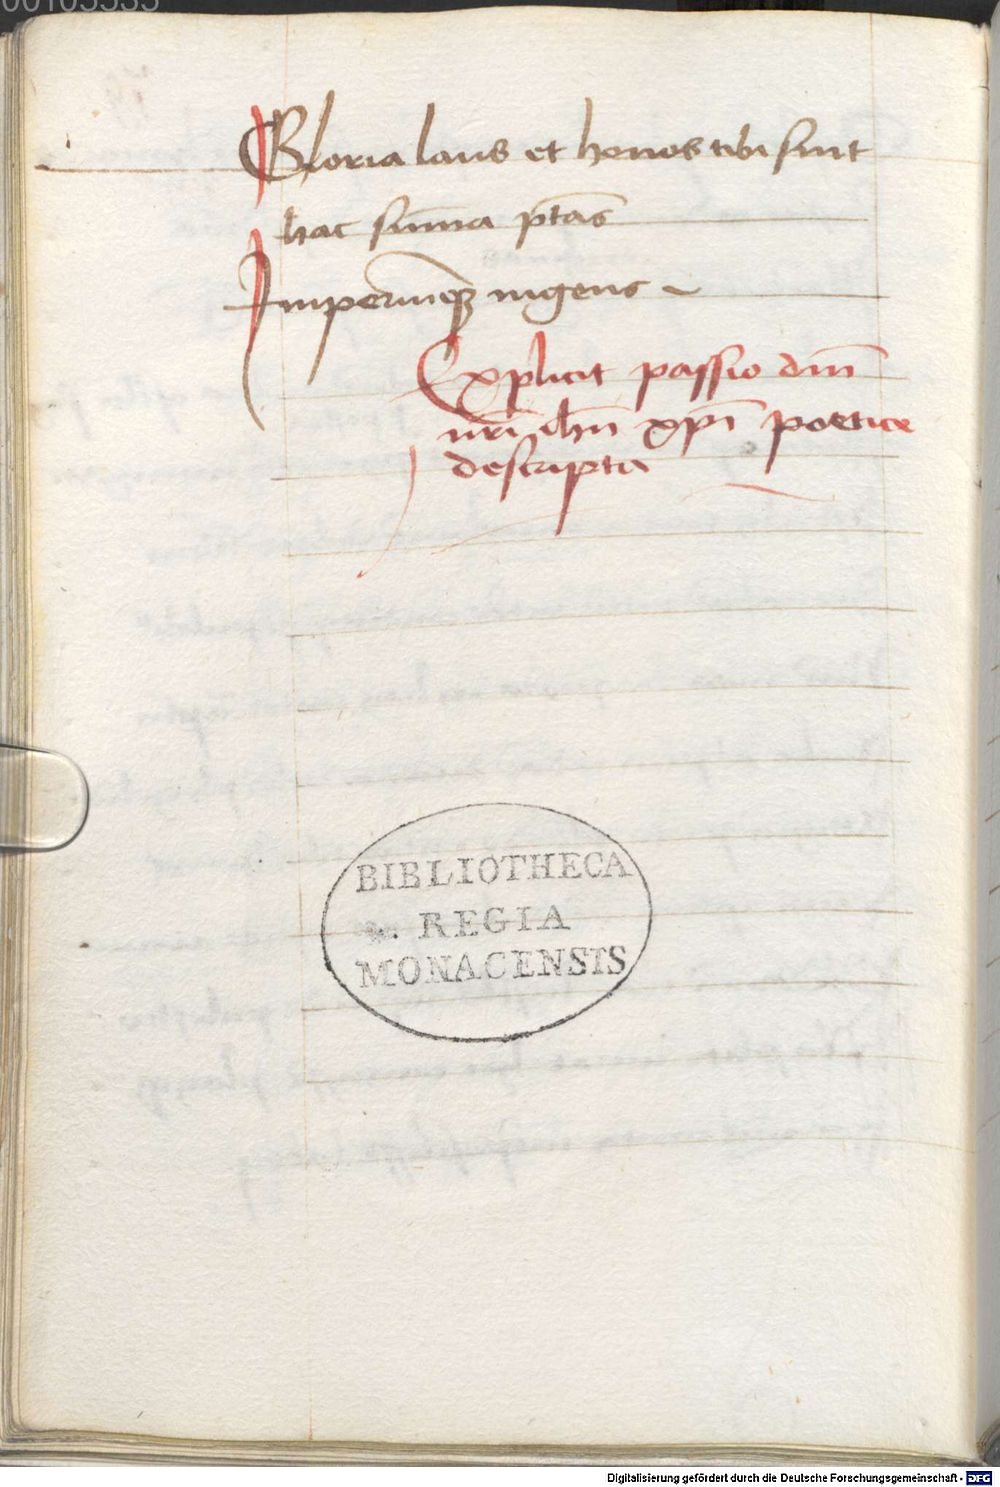 00105535
Gloria laus et honos tibi sint
hac sum̄a ptās
Imperiumqꝫ ingens
Explicit passio dn̄i
nr̄i ihū xp̄i poetice
descripta
BIBLIOTHECA
REGIA
MONACENSIS
Digitalisierung gefördert durch die Deutsche Forschungsgemeinschaft - DFG